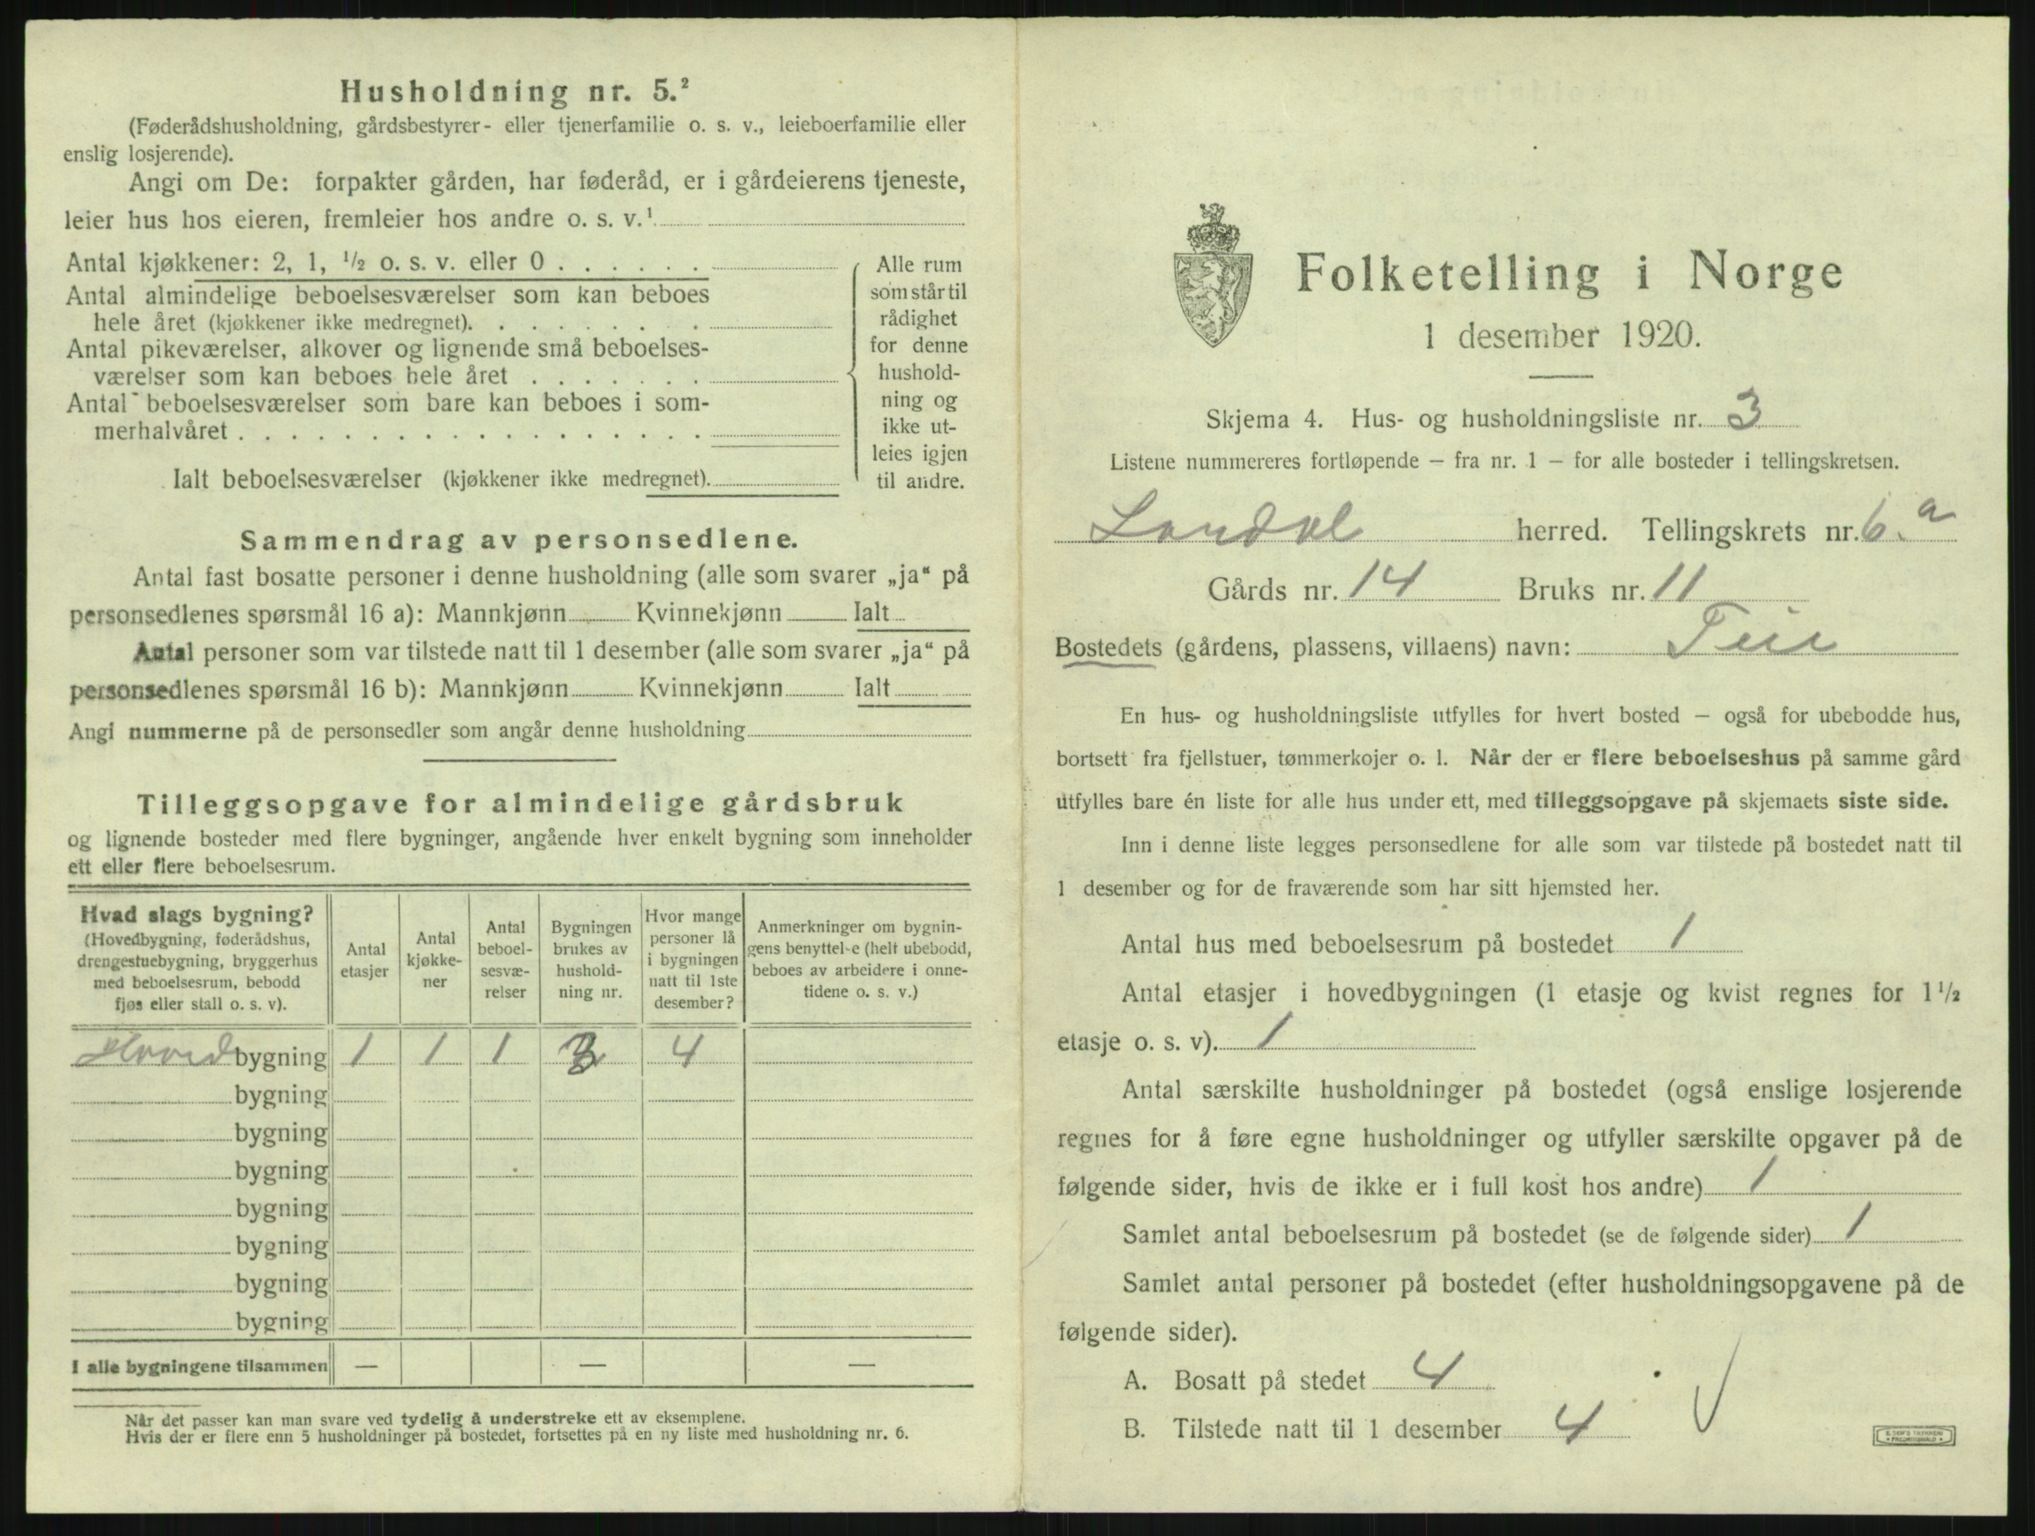 Husholdning nr. 5.²
(Føderådshusholdning, gårdsbestyrer- eller tjenerfamilie o. s. v., leieboerfamilie eller
enslig losjerende).
Angi om De: forpakter gården, har føderåd, er i gårdeierens tjeneste,
leier hus hos eieren, fremleier hos andre o. s. v.¹
Antal kjøkkener: 2, 1, ½ o. s. v. eller 0 . . . . . .
Antal almindelige beboelsesværelser som kan beboes
hele året (kjøkkener ikke medregnet). . . . . . . . .
Antal pikeværelser, alkover og lignende små beboelses-
værelser som kan beboes hele året . . . . . . .
Antal beboelsesværelser som bare kan beboes i som-
merhalvåret . . . . . . . . . . . . . . . . . .
Ialt beboelsesværelser (kjøkkener ikke medregnet).
Alle rum
som står til
rådighet
for denne
hushold-
ning og
ikke ut-
leies igjen
til andre.
Sammendrag av personsedlene.
Antal fast bosatte personer i denne husholdning (alle som svarer „ja“ på
personsedlenes spørsmål 16 a): Mannkjønn Kvinnekjønn Ialt
Antal personer som var tilstede natt til 1 desember (alle som svarer „ja“ på
personsedlenes spørsmål 16 b): Mannkjønn Kvinnekjønn Ialt
Angi nummerne på de personsedler som angår denne husholdning
Tilleggsopgave for almindelige gårdsbruk
og lignende bosteder med flere bygninger, angående hver enkelt bygning som inneholder
ett eller flere beboelsesrum.
Hvad slags bygning?
(Hovedbygning, føderådshus,
drengestuebygning, bryggerhus
med beboelsesrum, bebodd
fjøs eller stall o. s. v).
Antal
etasjer
Antal
kjøkke-
ner
Antal
beboel-
sesvæ-
relser
Bygningen
brukes av
hushold-
ning nr.
Hvor mange
personer lå
i bygningen
natt til 1ste
desember?
Anmerkninger om bygnin-
gens benyttelse (helt ubebodd,
beboes av arbeidere i onne-
tidene o. s. v.)
Hovedbygning 1 1 1 3 4
bygning
bygning
bygning
bygning
bygning
bygning
bygning
I alle bygningene tilsammen — — —
Når det passer kan man svare ved tydelig å understreke ett av eksemplene.
Hvis der er flere enn 5 husholdninger på bostedet, fortsettes på en ny liste med husholdning nr. 6.
Folketelling i Norge
1 desember 1920.
Skjema 4. Hus- og husholdningsliste nr. 3
Listene nummereres fortløpende – fra nr. 1 – for alle bosteder i tellingskretsen.
herred. Tellingskrets nr. 6.a
Gårds nr. 14 Bruks nr. 11
Bostedets (gårdens, plassens, villaens) navn: Teie
En hus- og husholdningsliste utfylles for hvert bosted – også for ubebodde hus,
bortsett fra fjellstuer, tømmerkojer o. l. Når der er flere beboelseshus på samme gård
utfylles bare én liste for alle hus under ett, med tilleggsopgave på skjemaets siste side.
Inn i denne liste legges personsedlene for alle som var tilstede på bostedet natt til
1 desember og for de fraværende som har sitt hjemsted her.
Antal hus med beboelsesrum på bostedet 1
Antal etasjer i hovedbygningen (1 etasje og kvist regnes for 1½
etasje o. s. v). 1
Antal særskilte husholdninger på bostedet (også enslige losjerende
regnes for å føre egne husholdninger og utfyller særskilte opgaver på de
følgende sider, hvis de ikke er i full kost hos andre) 1
Samlet antal beboelsesrum på bostedet (se de følgende sider) 1
Samlet antal personer på bostedet (efter husholdningsopgavene på de
følgende sider).
A. Bosatt på stedet 4
B. Tilstede natt til 1 desember 4